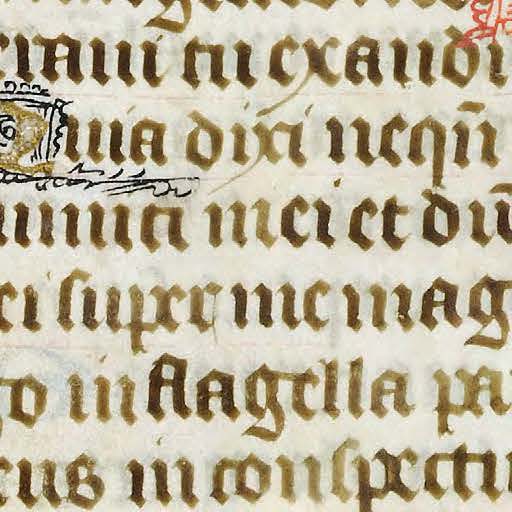 raui tu exaudi
uia dixi neqn̄
inimici mei et dū
ei super me mag
go in flagella pa
eus in conspectu